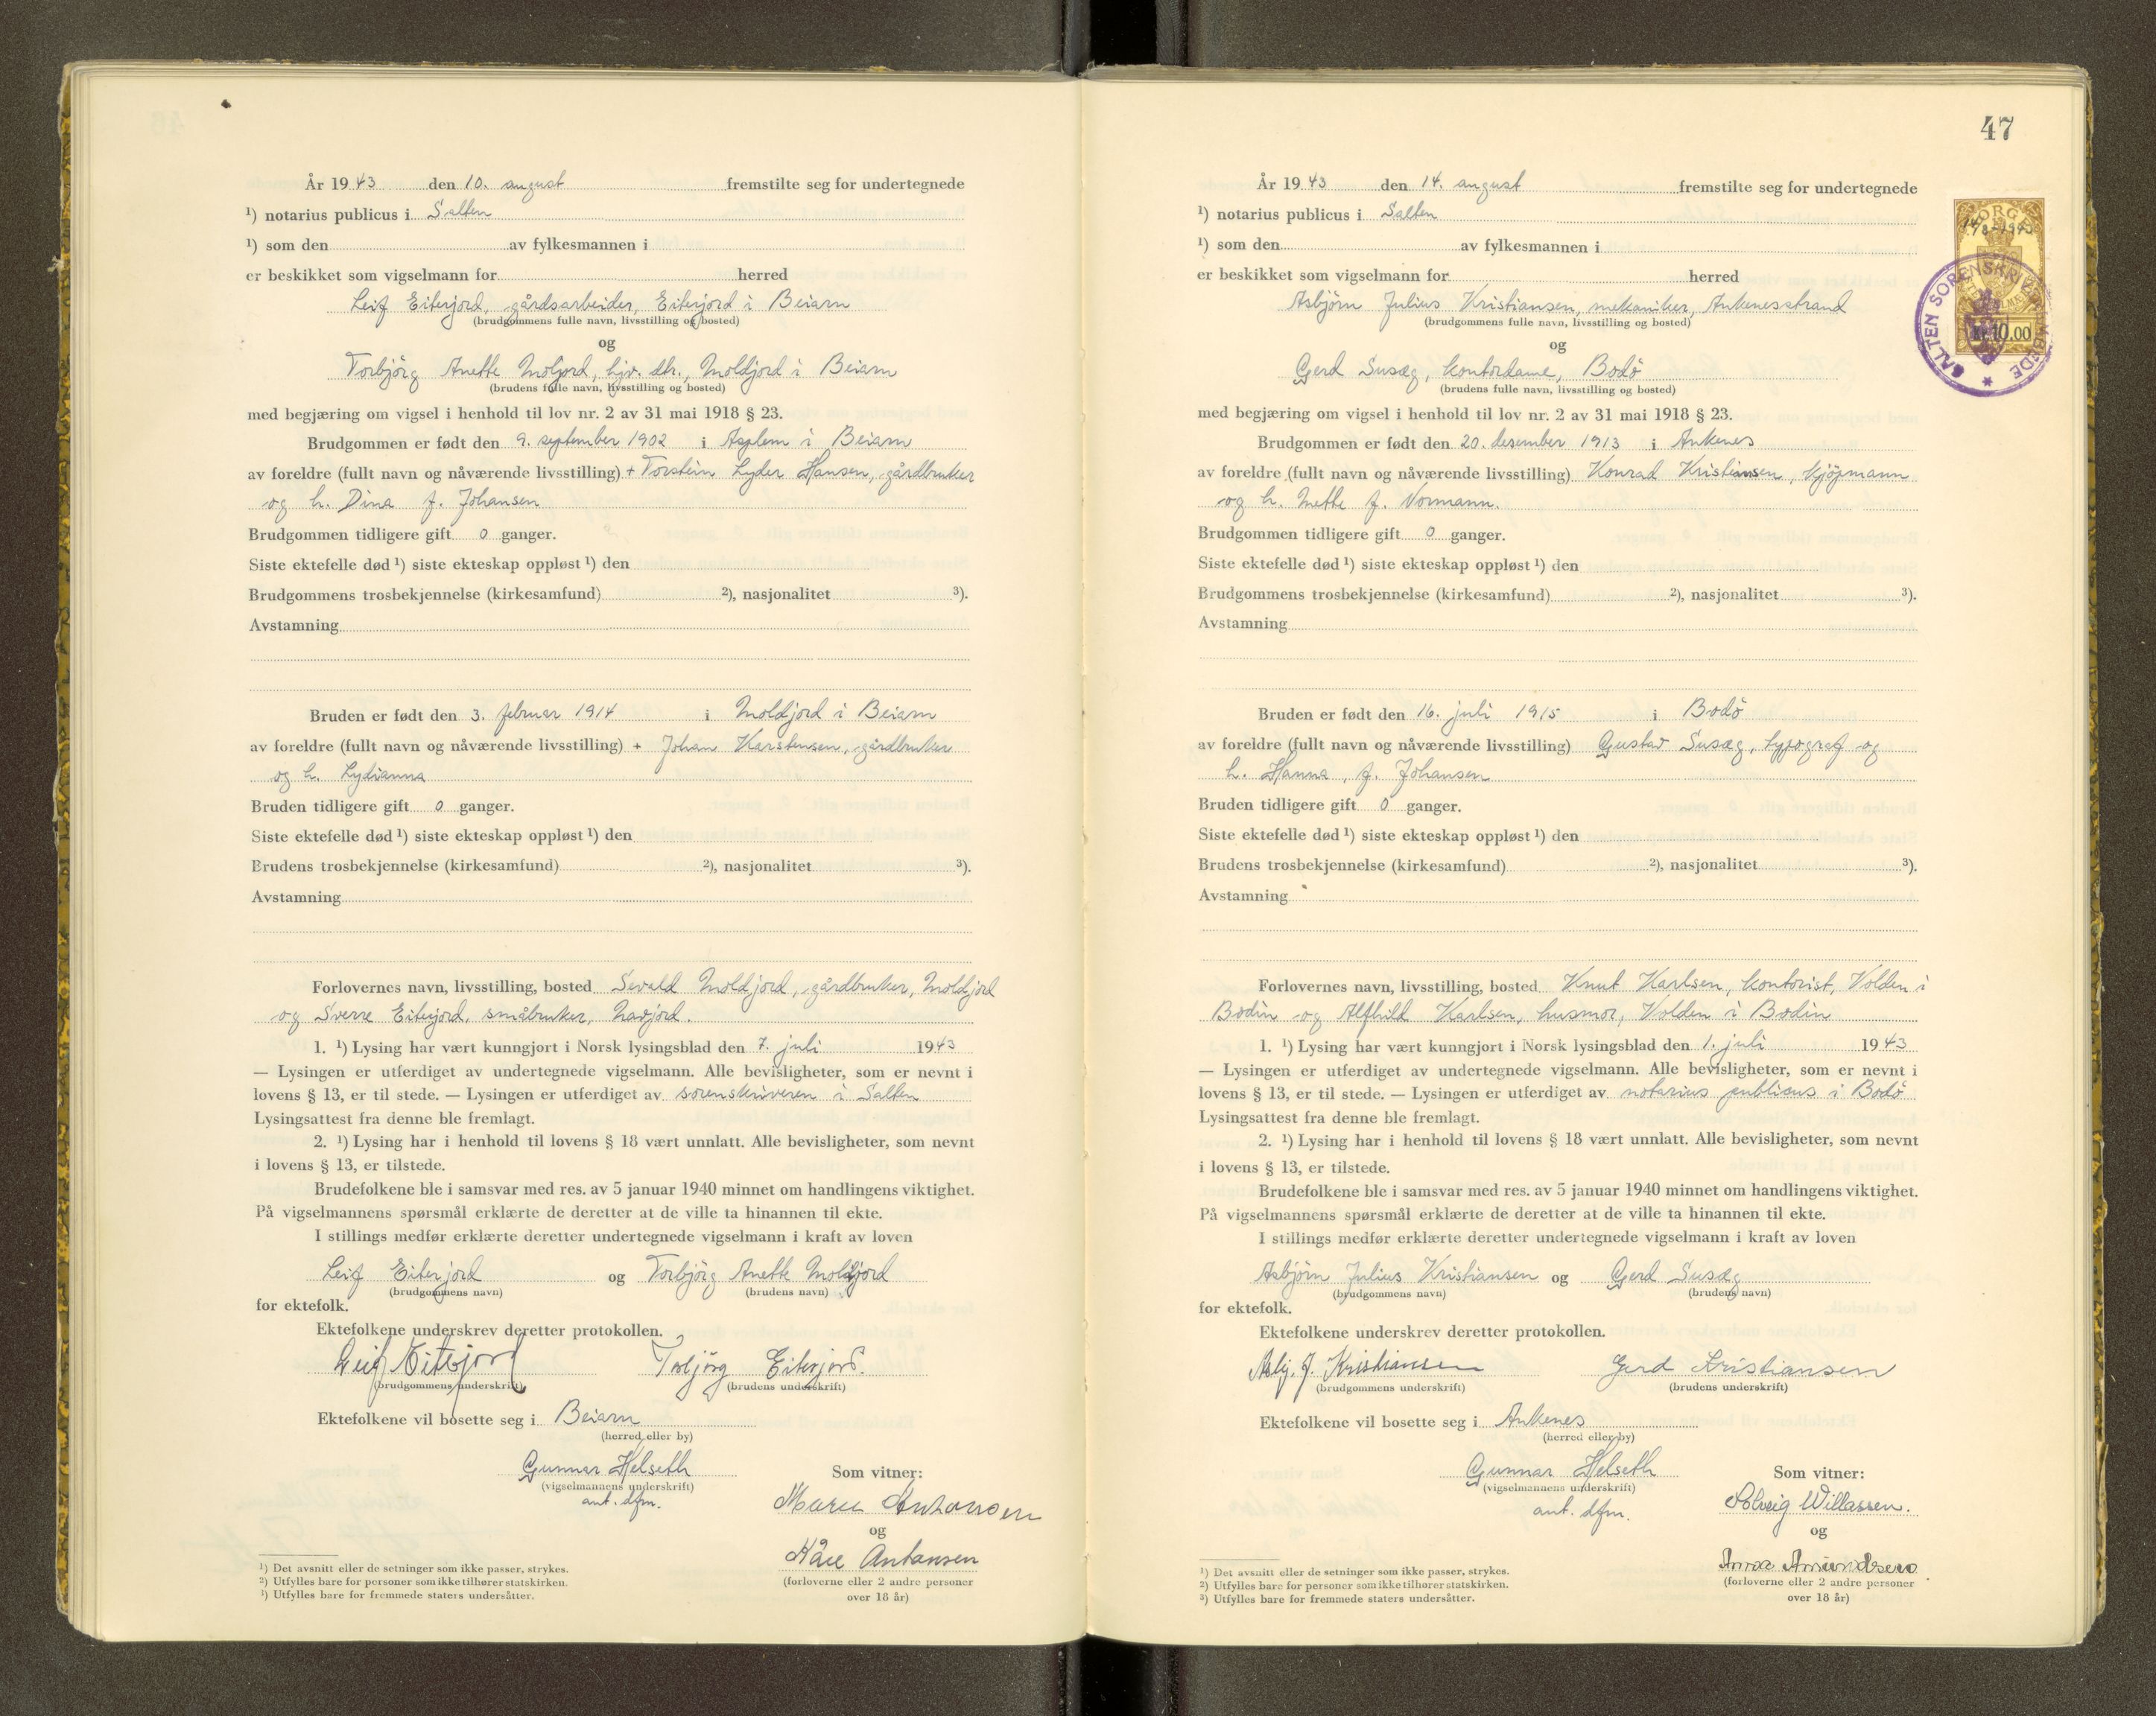 År 1943 den 10. august fremstilte seg for undertegnede
¹) notarius publicus i Salten
¹) som den av fylkesmannen i
er beskikket som vigselmann for herred
Leif Eiterjord, gårdsarbeider, Eiterjord i Beiarn
(brudgommens fulle navn, livsstilling og bosted)
og
Torbjörg Anette Moljord, hjv. dtr., Moldjord i Beiarn
(brudens fulle navn, livsstilling og bosted)
med begjæring om vigsel i henhold til lov nr. 2 av 31 mai 1918 § 23.
Brudgommen er født den 9. september 1902 i Asplem i Beiarn
av foreldre (fullt navn og nåværende livsstilling) + Torstein Lyder Hansen, gårdbruker
og h. Dina f. Johansen
Brudgommen tidligere gift 0 ganger.
Siste ektefelle død ¹) siste ekteskap oppløst ¹) den
Brudgommens trosbekjennelse (kirkesamfund) ²), nasjonalitet ³).
Avstamning
Bruden er født den 3. februar 1914 i Moldjord i Beiarn
av foreldre (fullt navn og nåværende livsstilling) + Johan Karstensen, gårdbruker
og h. Lydianna
Bruden tidligere gift 0 ganger.
Siste ektefelle død ¹) siste ekteskap oppløst ¹) den
Brudens trosbekjennelse (kirkesamfund) ²), nasjonalitet ³).
Avstamning
Forlovernes navn, livsstilling, bosted Sevald Moldjord, gårdbruker, Moldjord
og Sverre Eiterjord, småbruker, Navjord.
1. ¹) Lysing har vært kunngjort i Norsk lysingsblad den 7. juli 1943
— Lysingen er utferdiget av undertegnede vigselmann. Alle bevisligheter, som er nevnt i
lovens § 13, er til stede. — Lysingen er utferdiget av sorenskriveren i Salten
Lysingsattest fra denne ble fremlagt.
2. ¹) Lysing har i henhold til lovens § 18 vært unnlatt. Alle bevisligheter, som nevnt
i lovens § 13, er tilstede.
Brudefolkene ble i samsvar med res. av 5 januar 1940 minnet om handlingens viktighet.
På vigselmannens spørsmål erklærte de deretter at de ville ta hinannen til ekte.
I stillings medfør erklærte deretter undertegnede vigselmann i kraft av loven
Leif Eiterjord og Torbjörg Anette Moldjord
(brudgommens navn) (brudens navn)
for ektefolk.
Ektefolkene underskrev deretter protokollen.
Leif Eiterjord Torbjörg Eiterjord.
(brudgommens underskrift) (brudens underskrift)
Ektefolkene vil bosette seg i Beiarn
(herred eller by)
Gunnar Helseth Som vitner:
(vigselmannens underskrift)
aut. dfm.
Marie Antonsen
og
Kåre Antonsen
(forloverne eller 2 andre personer
over 18 år)
¹) Det avsnitt eller de setninger som ikke passer, strykes.
²) Utfylles bare for personer som ikke tilhører statskirken.
¹) Utfylles bare for fremmede staters undersåtter.
47
År 1943 den 14. august fremstilte seg for undertegnede
¹) notarius publicus i Salten
¹) som den av fylkesmannen i
er beskikket som vigselmann for herred
NORGE
14/8-1943
Kr 10.00
SALTEN SORENSKRIVEREMBEDE
Asbjörn Julius Kristiansen, mekaniker, Ankenesstrand
(brudgommens fulle navn, livsstilling og bosted)
og
Gerd Susæg, kontordame, Bodö
(brudens fulle navn, livsstilling og bosted)
med begjæring om vigsel i henhold til lov nr. 2 av 31 mai 1918 § 23.
Brudgommen er født den 20. desember 1913 i Ankenes
av foreldre (fullt navn og nåværende livsstilling) Konrad Kristiansen, kjöpmann
og h. Mette f. Normann.
Brudgommen tidligere gift 0 ganger.
Siste ektefelle død ¹) siste ekteskap oppløst ¹) den
Brudgommens trosbekjennelse (kirkesamfund) ²), nasjonalitet ³).
Avstamning
Bruden er født den 16. juli 1915 i Bodö
av foreldre (fullt navn og nåværende livsstilling) Gustav Susæg, typograf og
h. Hanna, f. Johansen
Bruden tidligere gift 0 ganger.
Siste ektefelle død ¹) siste ekteskap oppløst ¹) den
Brudens trosbekjennelse (kirkesamfund) ²), nasjonalitet ³).
Avstamning
Forlovernes navn, livsstilling, bosted Knut Karlsen, kontorist, Volden i
Bodin og Alfhild Karlsen, husmor, Volden i Bodin
1. ¹) Lysing har vært kunngjort i Norsk lysingsblad den 1. juli 1943
— Lysingen er utferdiget av undertegnede vigselmann. Alle bevisligheter, som er nevnt i
lovens § 13, er til stede. — Lysingen er utferdiget av notarius publicus i Bodö
Lysingsattest fra denne ble fremlagt.
2. ¹) Lysing har i henhold til lovens § 18 vært unnlatt. Alle bevisligheter, som nevnt
i lovens § 13, er tilstede.
Brudefolkene ble i samsvar med res. av 5 januar 1940 minnet om handlingens viktighet.
På vigselmannens spørsmål erklærte de deretter at de ville ta hinannen til ekte.
I stillings medfør erklærte deretter undertegnede vigselmann i kraft av loven
Asbjörn Julius Kristiansen og Gerd Susæg
(brudgommens navn) (brudens navn)
for ektefolk.
Ektefolkene underskrev deretter protokollen.
Asbj. J. Kristiansen Gerd Kristiansen
(brudgommens underskrift) (brudens underskrift)
Ektefolkene vil bosette seg i Ankenes
(herred eller by)
Gunnar Helseth Som vitner:
(vigselmannens underskrift)
aut. dfm.
Solveig Willassen.
og
Anna Amundsen
(forloverne eller 2 andre personer
over 18 år)
¹) Det avsnitt eller de setninger som ikke passer, strykes.
²) Utfylles bare for personer som ikke tilhører statskirken.
³) Utfylles bare for fremmede staters undersåtter.